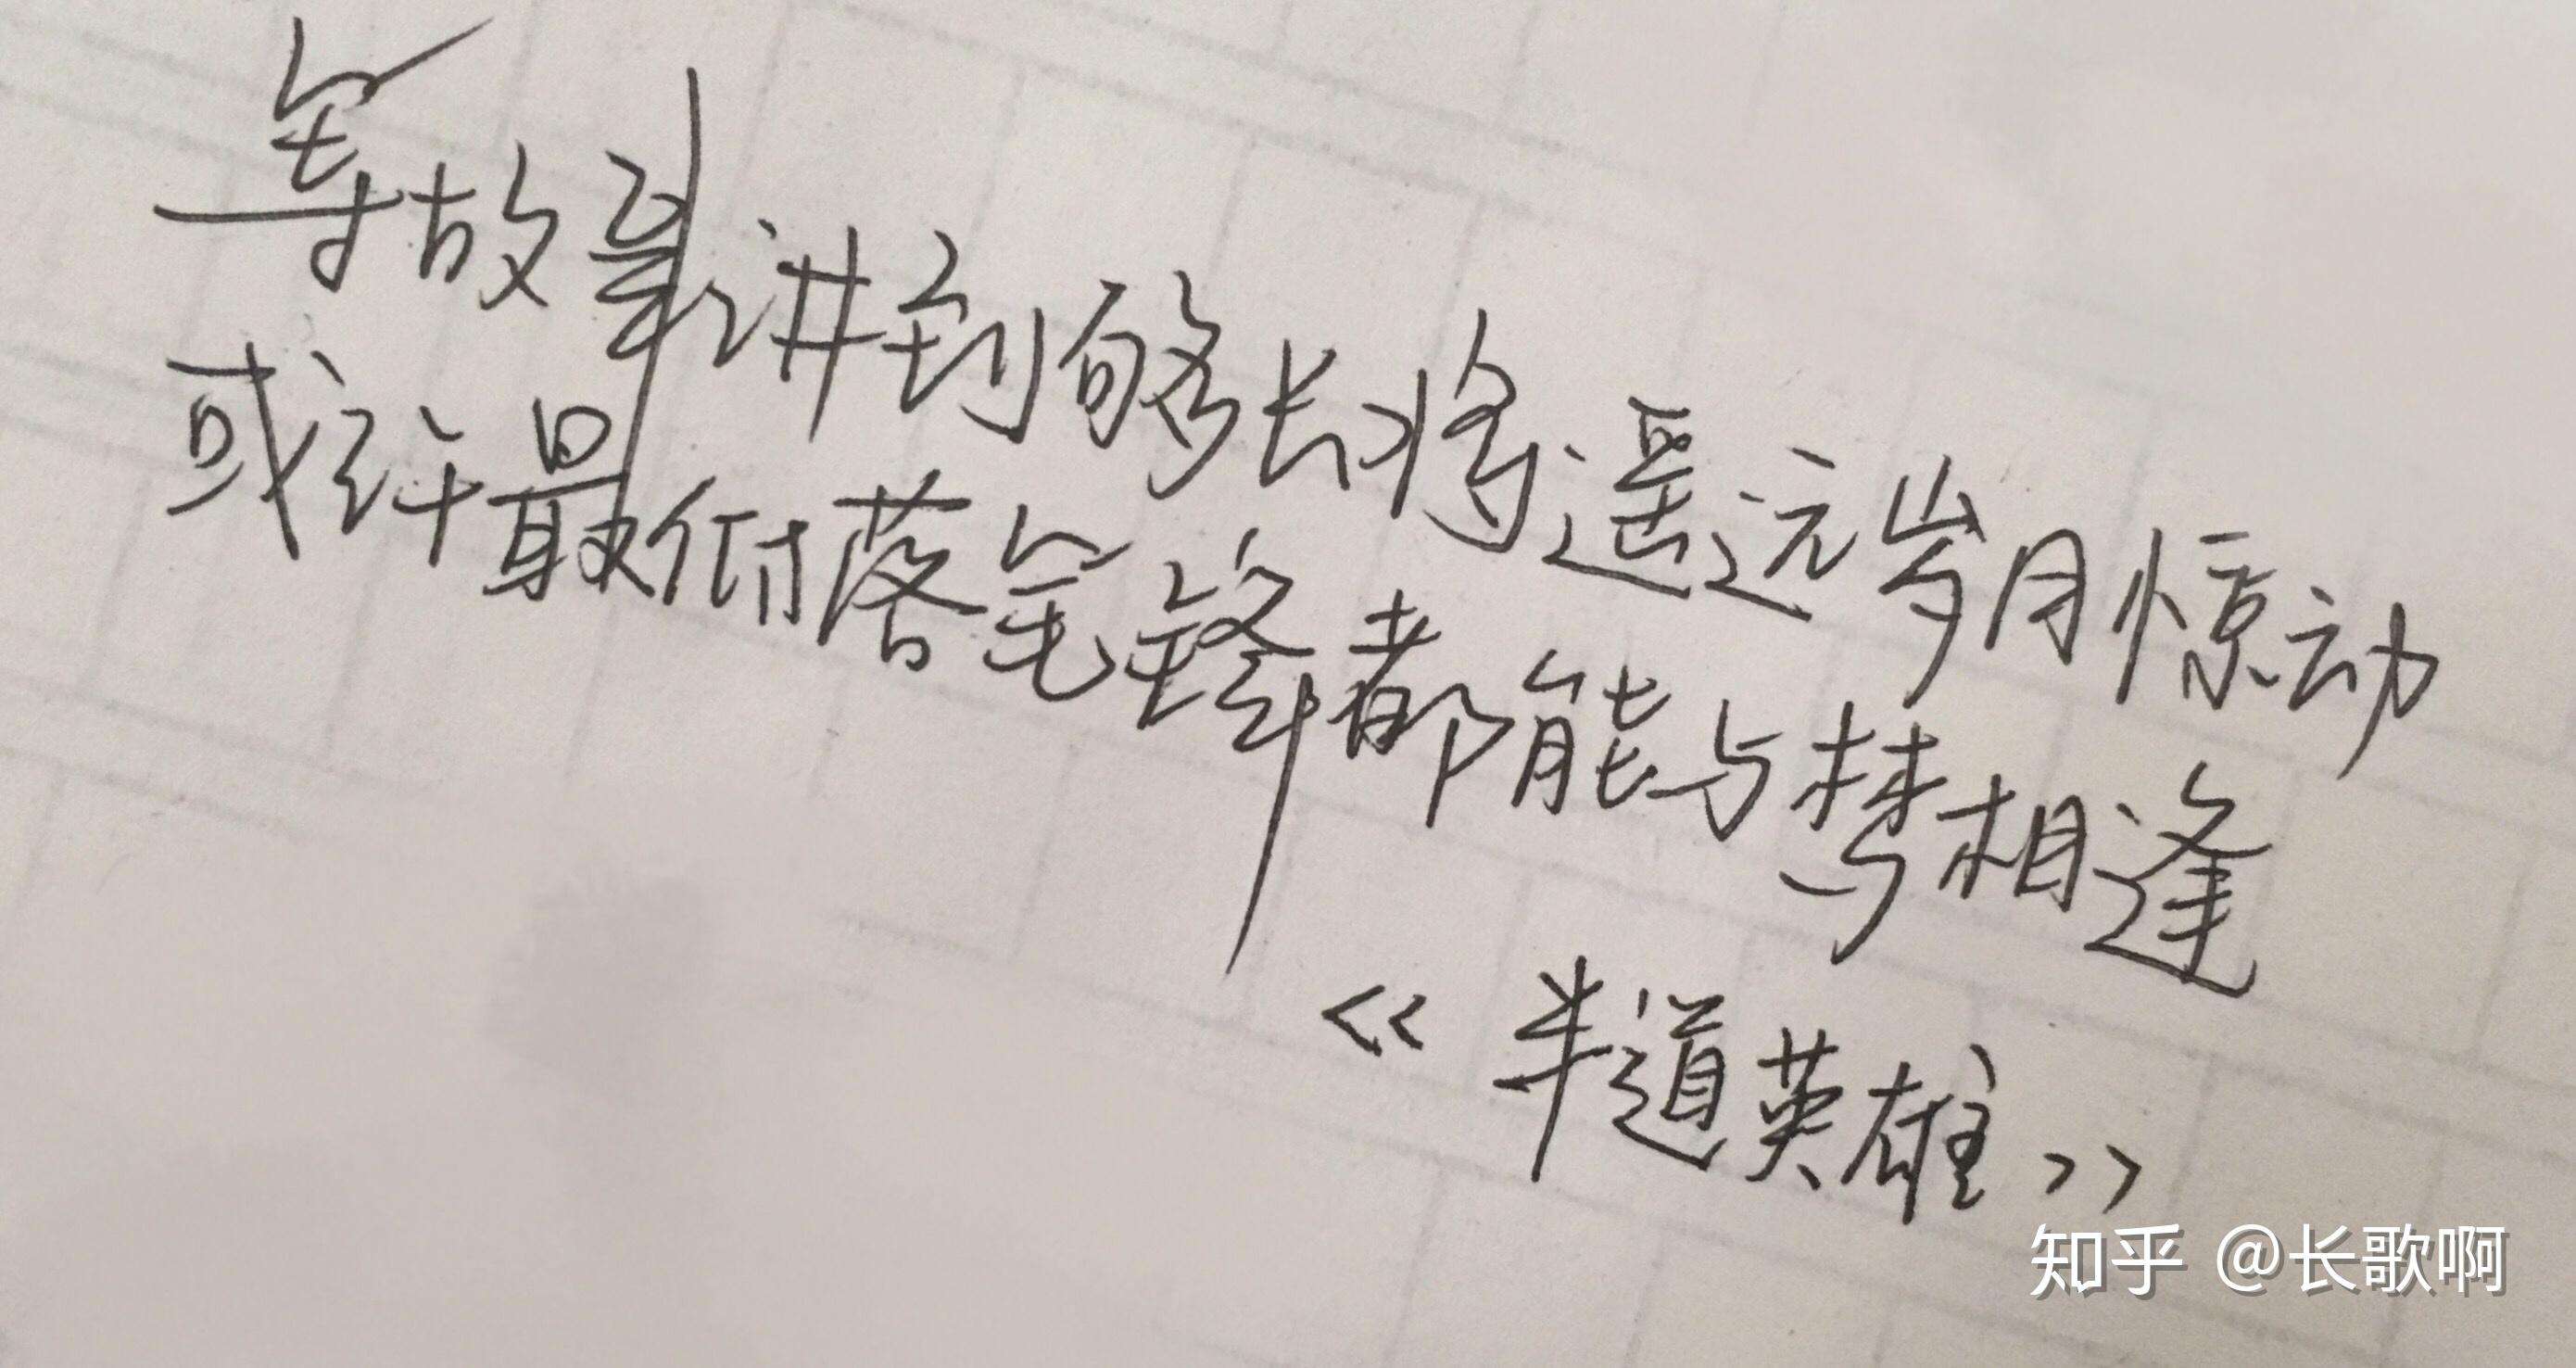 等故事讲到够长将遥远岁月惊动
或许最微落笔锋都能与梦相逢
《半道英雄》
知乎 @长歌啊